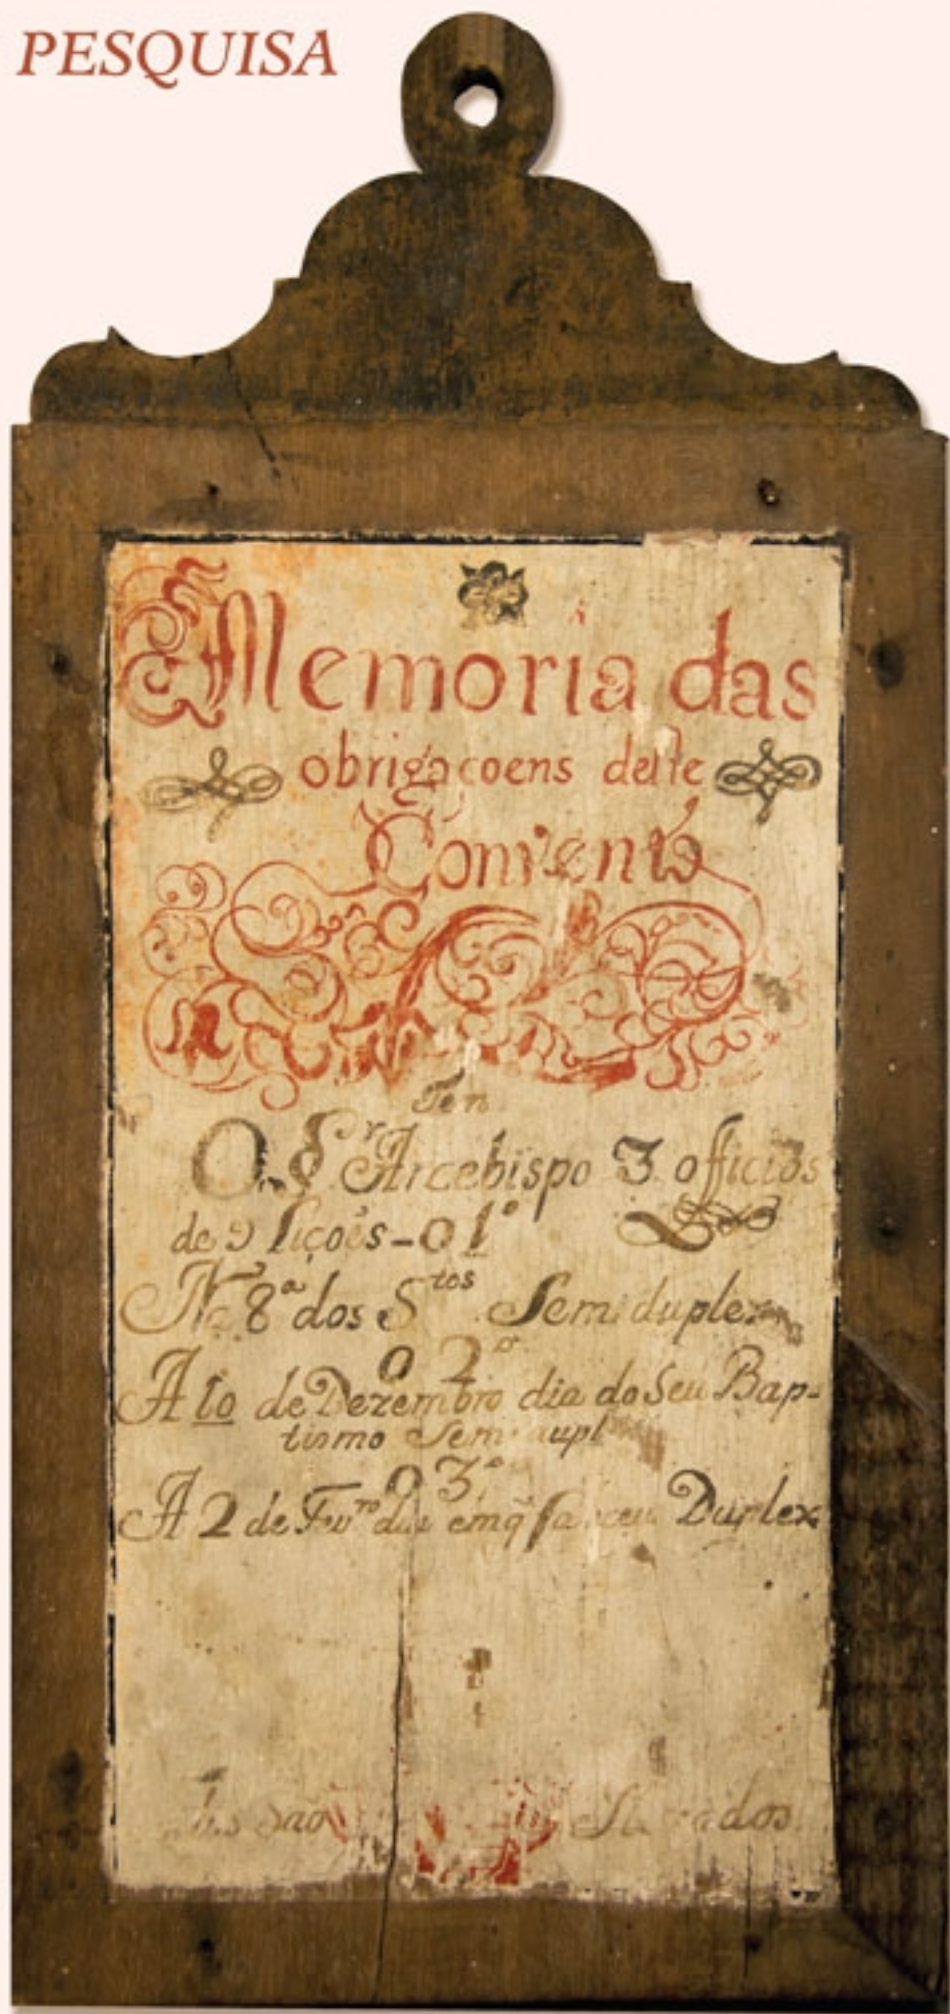 PESQUISA
Memoria das
obrigaçoens deste
Convento
Tem
O Sr Arcebispo 3 officios
de 9 liçoẽs - o 1º
Na 8ª dos Stos Semiduplex
o 2º
A 10 de Dezembro dia do seu Bap-
tismo Semidupl
o 3º
A 2 de Fevro dia em q̃ faleceu Duplex